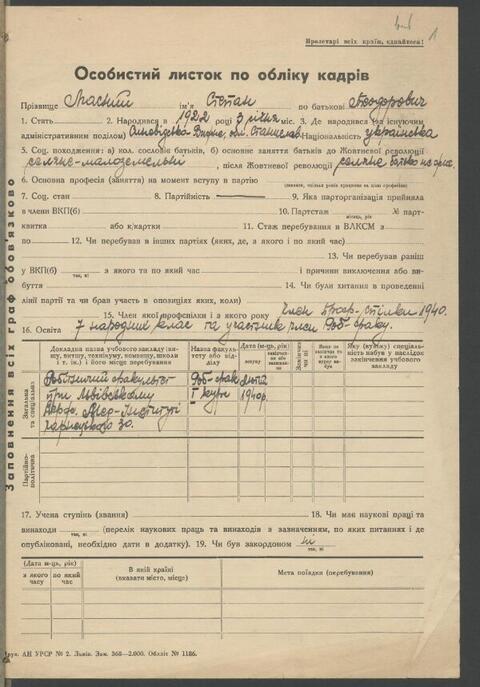 1
Пролетарі всіх країн, єднайтеся!
Особистий листок по обліку кадрів
Прізвище Масний ім'я Степан по батькові Теодорович
1. Стать 2. Народився в 1922 році 3 січня міс. 3. Де народився (за існуючим
адміністративним поділом) Синевідська обл. Станислав Національність українська
5. Соц. походження: а) кол. сословіє батьків, б) основне заняття батьків до Жовтневої революції
селяне-малоземельні, після Жовтневої революції селяне
6. Основна професія (заняття) на момент вступу в партію
7. Соц. стан 8. Партійність 9. Яка парторганізація прийняла
в члени ВКП(б) 10. Партстаж № парт-
місяць, рік
квитка або к/картки 11. Стаж перебування в ВЛКСМ з
по 12. Чи перебував в інших партіях (яких, де, з якого і по який час)
13. Чи перебував раніш
у ВКП(б) з якого та по який час і причини виключення або ви-
так, ні
буття 14. Чи були хитання в проведенні
лінії партії та чи брав участь в опозиціях яких, коли)
15. Член якої професпілки і з якого року Член Проф-спілки 1940.
16. Освіта 7 народних клас та Роб-факу.
Заповнення всіх граф обов'язково
Загальна та спеціальна
Партійно-політична
Докладна назва учбового закладу (вищу, витшу, технікуму, комвишу, школи і т. ін.) і його місце перебування
Назва факультету або відділу
Дата (м-ць, рік)
вступу
Закінчив чи ні
Яку (вузьку) спеціальність набув у наслідок закінчення учбового закладу
Робітничий факультет
при Львівському
Мед-Інституті
30.
Роб-фак
I курс
1940р.
17. Учена ступінь (звання) 18. Чи має наукові праці та
винаходи (перелік наукових праць та винаходів з зазначенням, по яких питаннях і де
так, ні
опубліковані, необхідно дати в додатку). 19. Чи був закордоном ні
так, ні
(Дата м-ць, рік)
з якого часу
по який час
В якій країні
(вказати місто, місце)
Мета поїздки (перебування)
Друк. АН УРСР № 2. Львів. Зам. 368—2.000. Обліт № 1186.